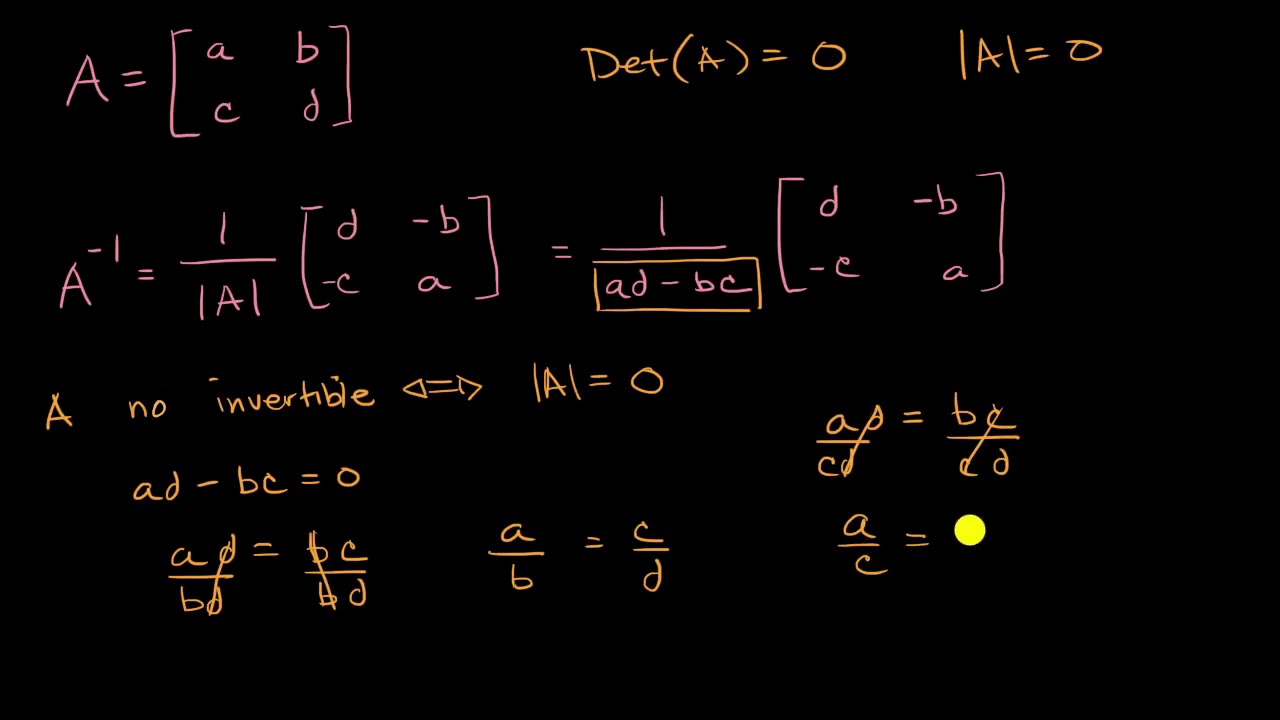 A = [ a b ; c d ] Det(A) = 0 |A| = 0
A⁻¹ = 1/|A| [ d -b ; -c a ] = 1/(ad - bc) [ d -b ; -c a ]
A no invertible <=> |A| = 0
ad - bc = 0
ad/bd = bc/bd
a/b = c/d
ad/cd = bc/cd
a/c =